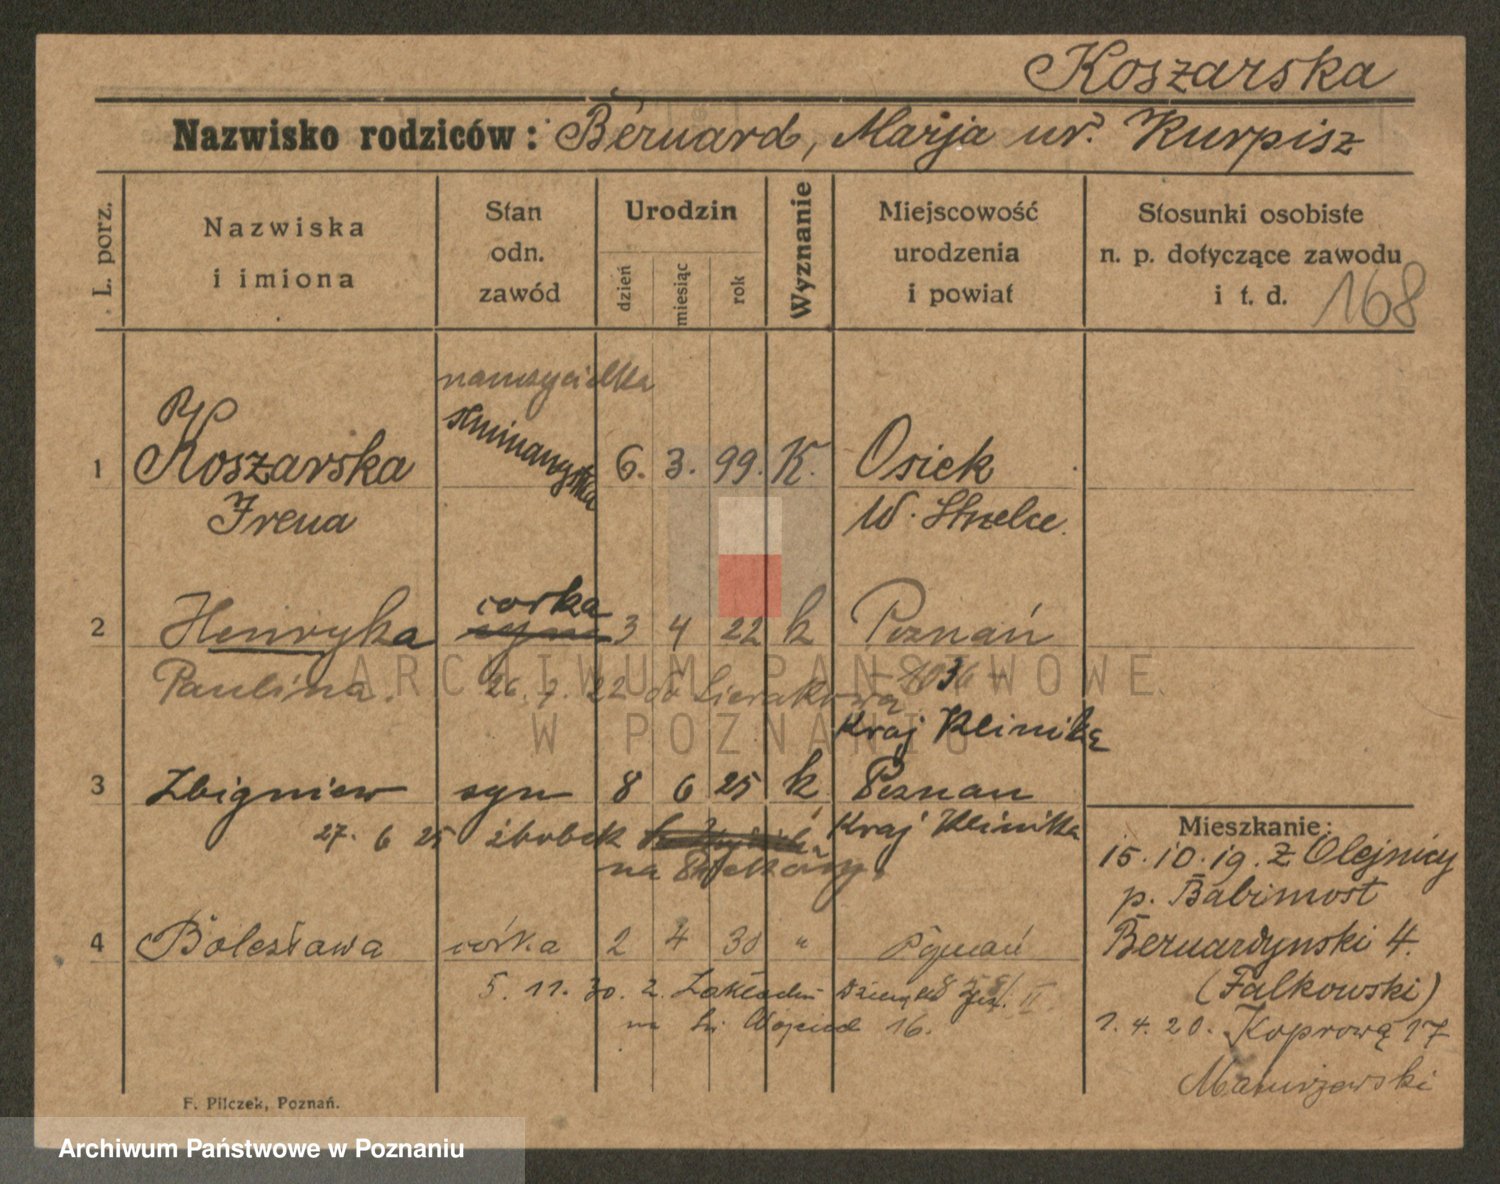 Koszarska
Nazwisko rodziców: Bernard, Marja ur. Kurpisz
L. porz.
Nazwiska
i imiona
Stan
odn.
zawód
Urodzin
dzień
miesiąc
rok
Wyznanie
Miejscowość
urodzenia
i powiat
Stosunki osobiste
n. p. dotyczące zawodu
i t. d.
168
nauczycielka
seminarzystka
1 Koszarska 6. 3. 99. K. Osiek
Irena W. Strzelce.
córka
2 Henryka syn 3 4 22 k Poznań
Paulina. 26. 7. 22 od Sierakowa
Kraj Klinikę
3 Zbigniew syn syn 8 6 25 k Poznan
27. 6 25 żłobek Kraj Klinika
na
4 Bolesława córka 2 4 30 " Poznań
5. 11. 30. z. Zakładu II.
na Św Wojciech 16.
Mieszkanie:
15. 10. 19. z Olejnicy
p. Babimost
Bernardynski 4.
(Falkowski)
1. 4. 20. Koprową 17
F. Pilczek, Poznań.
ARCHIWUM PAŃSTWOWE
W POZNANIU
Archiwum Państwowe w Poznaniu